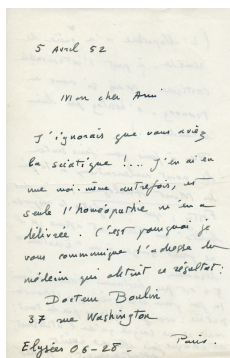 5 Avril 52
Mon cher Ami
J'ignorais que vous aviez
la sciatique !... j'en ai eu
une moi-même autrefois, et
seule l'homéopathie m'en a
délivrée. C'est pourquoi je
vous communique l'adresse du
médecin qui obtint ce résultat :
Docteur Boulin
37 rue Washington
Paris.
Elysées 06-28.